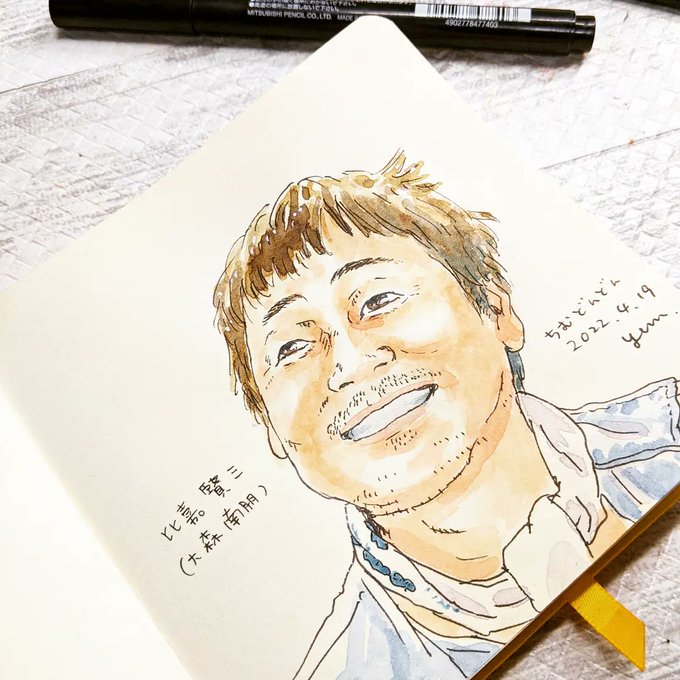 MITSUBISHI PENCIL CO., LTD.
4902778477403
ちむどんどん
2022.4.19
yem.
比嘉賢三
(大森南朋)